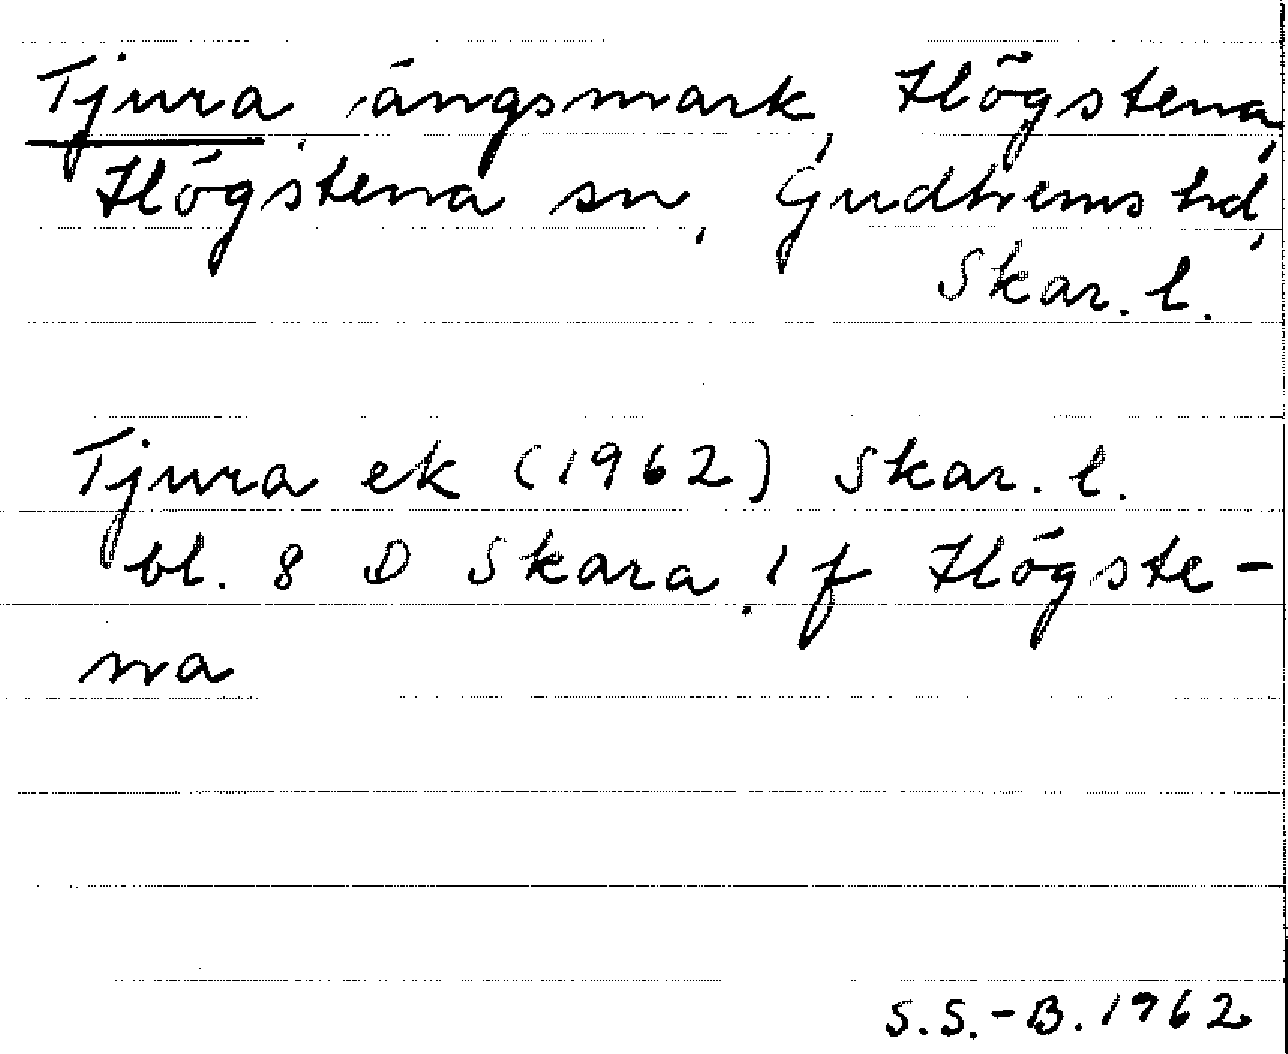 Tjura, ängsmark, Högstena,
Högstena sn, Gudhems hd,
Skar. l.
Tjura ek (1962) Skar. l.
bl. 8 D Skara, 1 f Högste-
na
S.S.-B. 1962